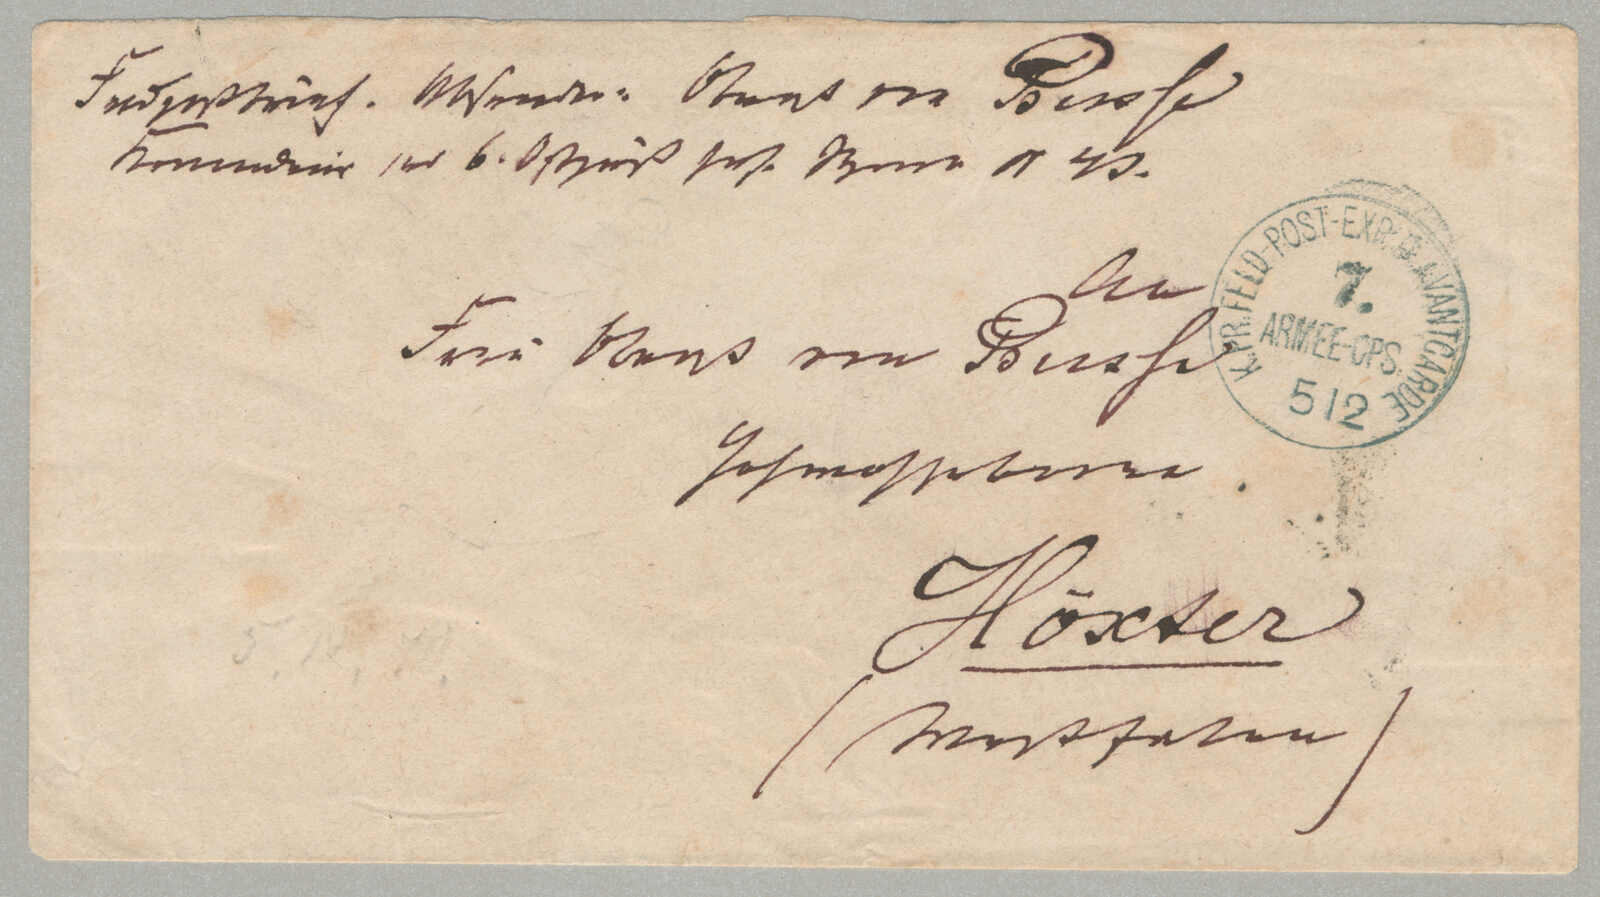 Feldpostbrief. Absender: Oberst von Busse
Kommandeur des 6. Ostpreuß. Inf. Regim. № 43.
An
Frau Oberst von Busse
Hochwohlgeboren.
Höxter
(Westfalen)
K. PR. FELD-POST-EXP. D. AVANTGARDE
7.
ARMEE-CPS.
5 12